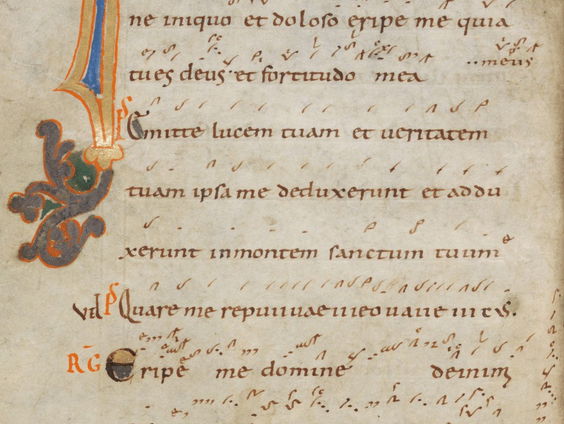 ne iniquo et doloso eripe me quia
tu es deus et fortitudo mea
..meus
Ps Emitte lucem tuam et veritatem
tuam ipsa me deduxerunt et addu
xerunt in montem sanctum tuum
Ps Quare me
RG Eripe me domine